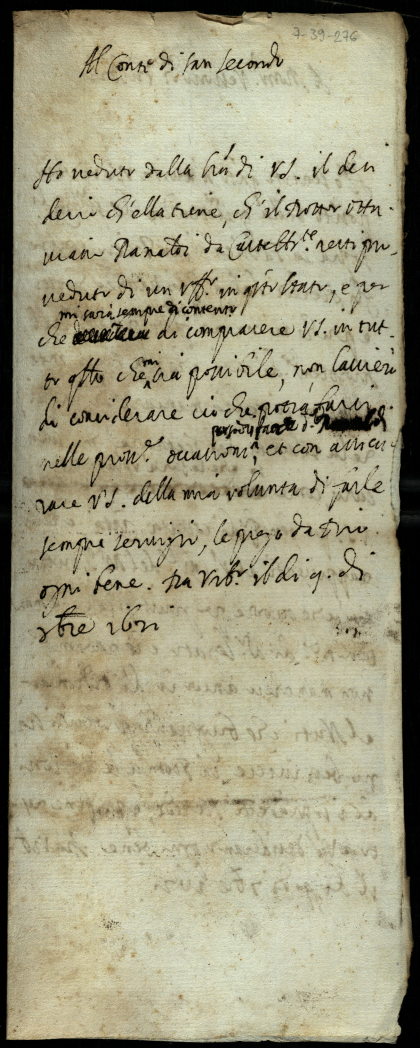 7-39-276
Al Conte di san secondo
Ho veduto dalla lra di VS. il desi
derio ch'ella tiene, ch'il Dottor Otta
viani Ranaldi da resti pro
veduto di un uff.º in q.sto stato, e per
mi sarà sempre di contento
che di compiacere VS. in tut
to q.llo che mi sia possibile, non lascierò
di considerare ciò che potrà farsi
persona
nelle pross.e occasioni, et con assicu
rare VS. della mia volunta di farle
sempre servigio, le prego da Dio
ogni bene. Da Urb.º il di 9. di
xbre 1601